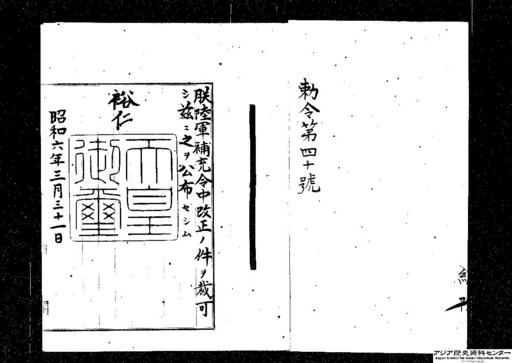 勅令第四十號
朕陸軍補充令中改正ノ件ヲ裁可
シ茲ニ之ヲ公布セシム
裕仁
天皇
御璽
昭和六年三月三十一日
アジア歴史資料センター
Japan Center for Asian Historical Records